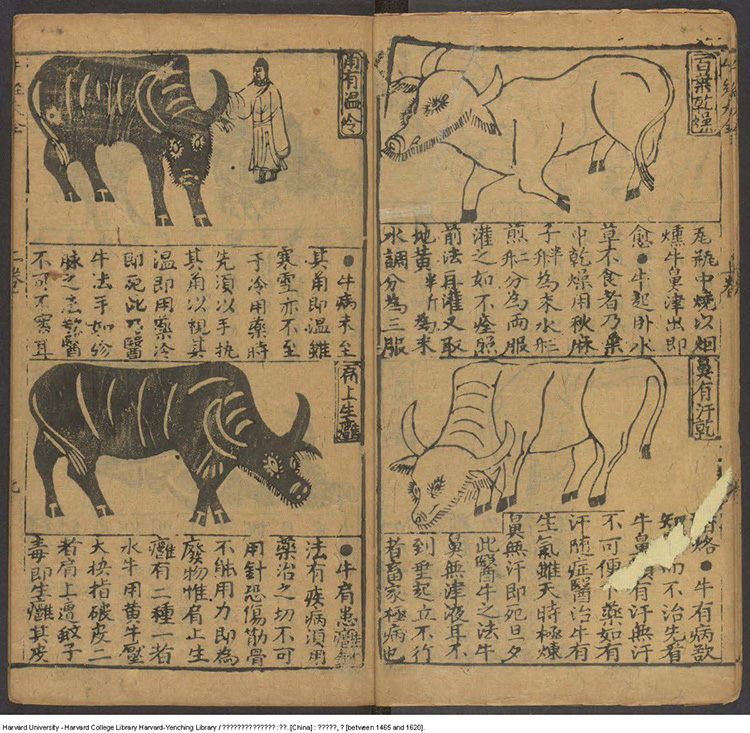 百葉乾燥
瓦瓶中燒以烟
燻牛鼻津出即
愈●牛起卧水
草不食者乃葉
中乾燥用秋麻
子為末水
煎分為兩服
灌之如不痊照
前法再灌又取
地黄半斤為末
水調分為三服
鼻有汗乾
烙●牛有病欲
知而不治先看
牛鼻有汗無汗
不可便藥如有
汗隨症醫治牛有
生氣雖天時極煉
鼻無汗即死旦夕
此醫牛之法牛
鼻無津液耳不
到垂起立不行
者畜家極病也
角有温冷
●牛病未至
其角即温雖
寒雪亦不至
于冷用藥時
先須以手执
其角以視其
温即用藥冷
即死此乃醫
牛法手如珍
脉之法欲醫
不可不察耳
肩上生癰
●牛肩患癰
法有疾病須用
藥治之切不可
用針恐傷筋骨
不能用力即為
廢物惟肩上生
癰有二種一者
水牛用黄牛壓
大挾指破皮二
者肩上遭蚊子
毒即生癰其皮
二卷
九
Harvard University - Harvard College Library Harvard-Yenching Library / ?????????????? :??. [China] : ?????, ? [between 1465 and 1620].